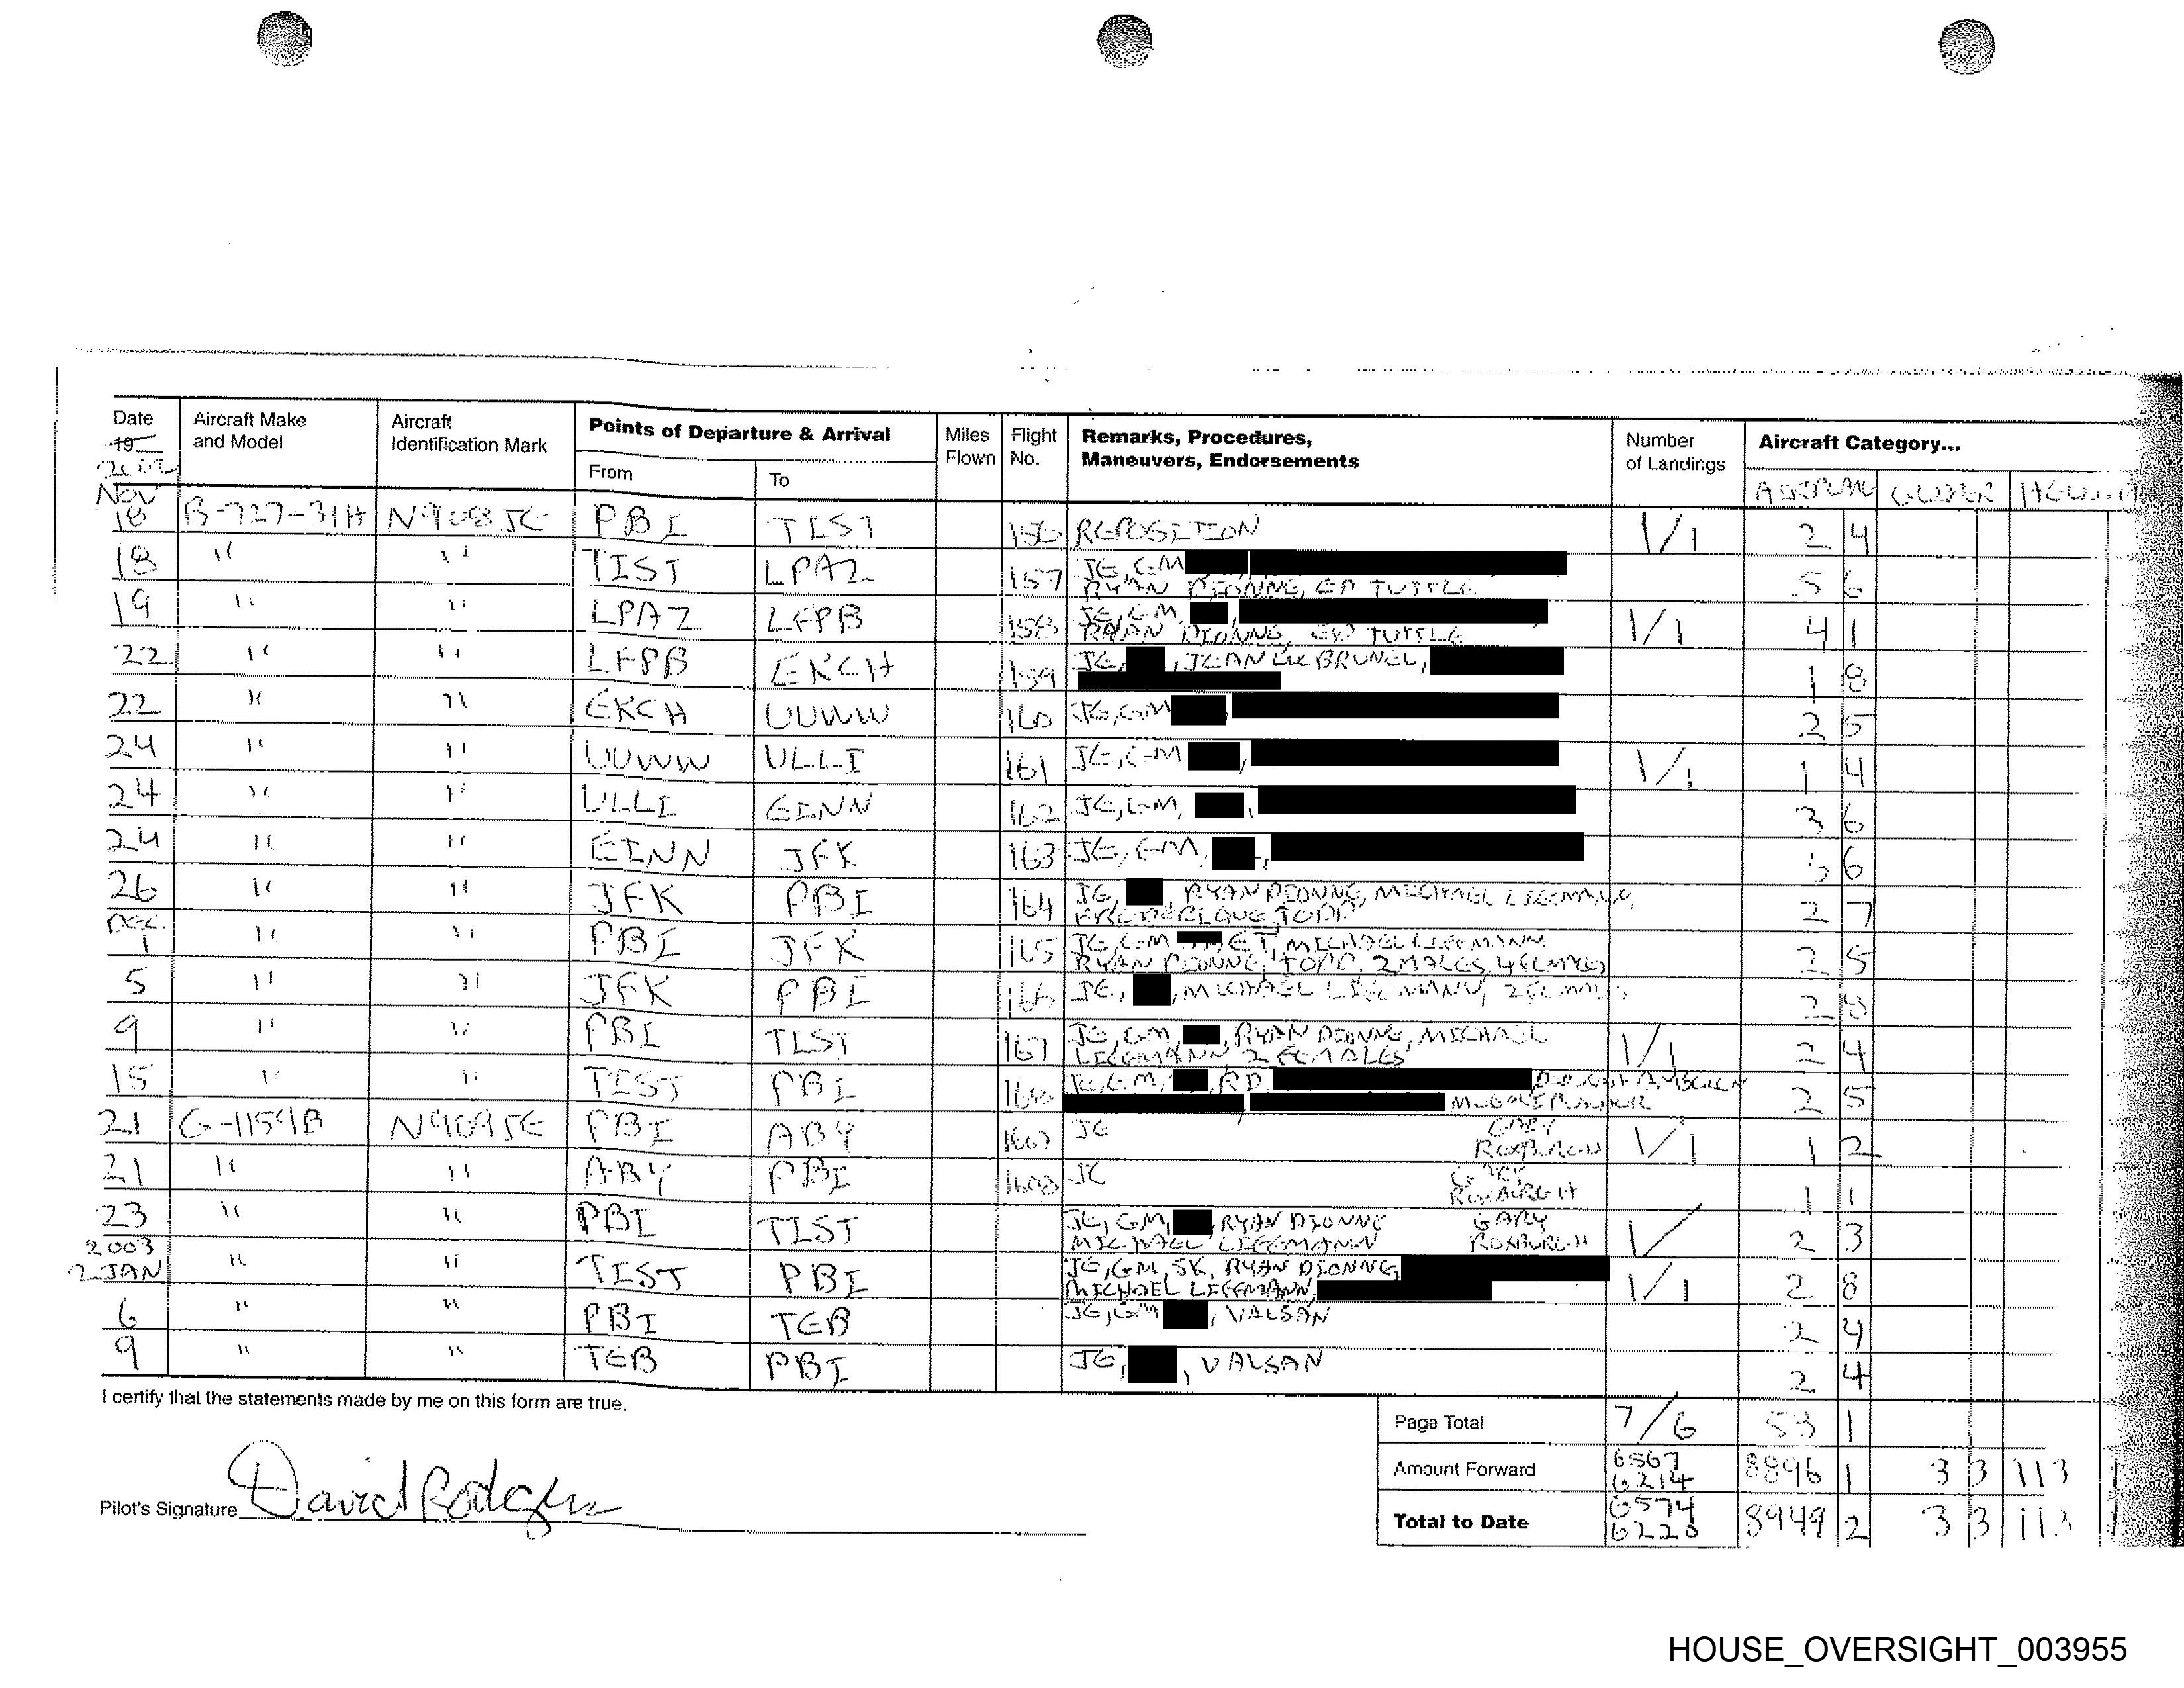 Date Aircraft Make and Model Aircraft Identification Mark Points of Departure & Arrival Miles Flown Flight No. Remarks, Procedures, Maneuvers, Endorsements Number of Landings Aircraft Category...
19
2002 From To AIRPLANE GLIDER
NOV
18 B-727-31H N908JE PBI TIST 156 REPOSITION 1/1 2 4
18 " " TIST LPAZ 157 JE, GM 5 6
RYAN DIONNE, ED TUTTLE
19 " " LPAZ LFPB 158 JE, GM, 1/1 4 1
RYAN DIONNE, ED TUTTLE
22 " " LFPB EKCH 159 JE, , JEAN LUC BRUNEL, 1 8
22 " " EKCH UUWW 160 JE, GM 2 5
24 " " UUWW ULLI 161 JE, GM , 1/1 1 4
24 " " ULLI EINN 162 JE, GM, , 3 6
24 " " EINN JFK 163 JE, GM, , 6
26 " " JFK PBI 164 JE, RYAN DIONNE, MICHAEL LIFFMANN, 2 7
TODD
DEC
1 " " PBI JFK 165 JE, GM ET, MICHAEL LIFFMANN 2 5
RYAN DIONNE, TODD, 2 MALES, 4 FEMALES
5 " " JFK PBI 166 JE, , MICHAEL LIFFMANN, 2 FEMALES 2 8
9 " " PBI TIST 167 JE, GM, , RYAN DIONNE, MICHAEL 1/1 2 4
LIFFMANN 2 FEMALES
15 " " TIST PBI 168 JE, GM, , RD, 2 5
21 G-1159B N909JE PBI ABY 1607 JE GARY ROXBURGH 1/1 1 2
21 " " ABY PBI 1608 JE GARY ROXBURGH 1 1
23 " " PBI TIST JE, GM, RYAN DIONNE GARY 1/ 2 3
MICHAEL LIFFMANN ROXBURGH
2003
2 JAN " " TIST PBI JE, GM, SK, RYAN DIONNE, 1/1 2 8
MICHAEL LIFFMANN,
6 " " PBI TEB JE, GM , VALSAN 2 4
9 " " TEB PBI JE, , VALSAN 2 4
I certify that the statements made by me on this form are true.
Page Total 7/6 53 1
Amount Forward 6567 6214 8896 1 3 3 113 1
Total to Date 6574 6220 8949 2 3 3 113 1
Pilot's Signature David Rodgers
HOUSE_OVERSIGHT_003955